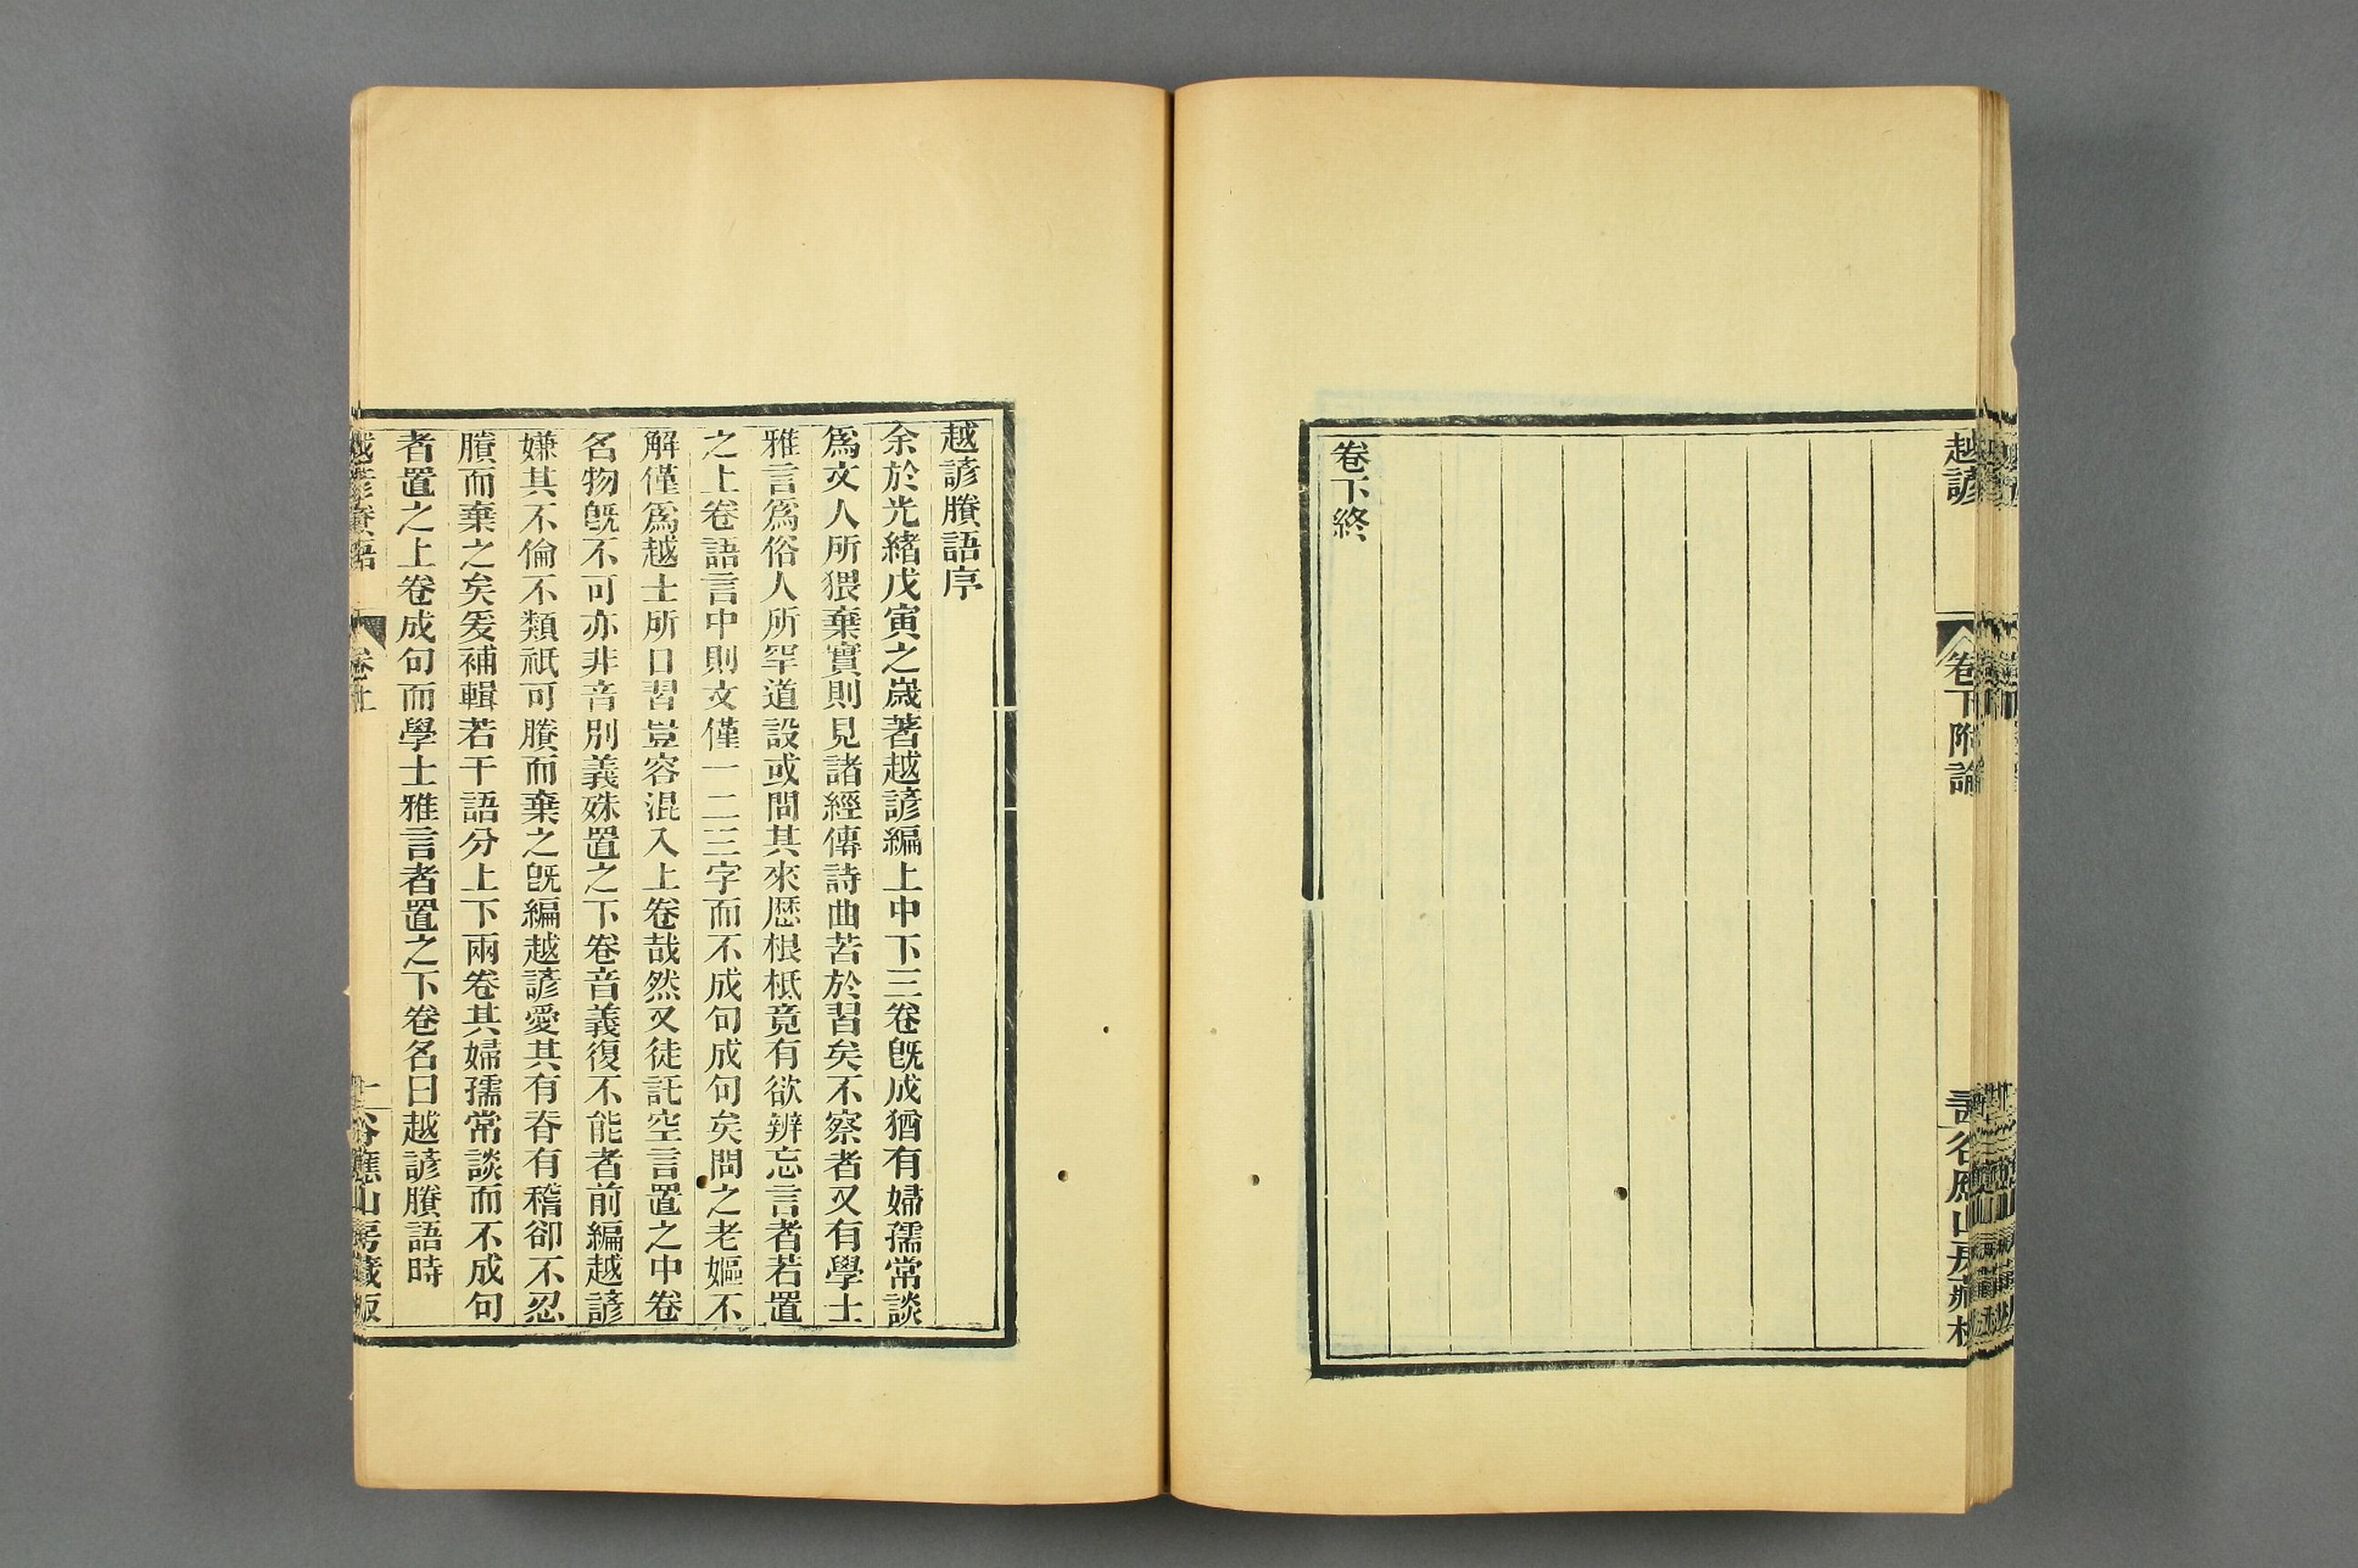 越諺
卷下附論
谷應山房藏板
卷下終
越諺賸語序
余於光緖戊寅之歲著越諺編上中下三卷旣成猶有婦孺常談
爲文人所猥棄實則見諸經傳詩曲苦於習矣不察者又有學士
雅言爲俗人所罕道設或問其來歷根柢竟有欲辨忘言者若置
之上卷語言中則文僅一二三字而不成句成句矣問之老嫗不
解僅爲越士所口習豈容混入上卷哉然又徒託空言置之中卷
名物旣不可亦非音別義殊置之下卷音義復不能者前編越諺
嫌其不倫不類祇可賸而棄之旣編越諺愛其有脊有稽卻不忍
賸而棄之矣爰補輯若干語分上下兩卷其婦孺常談而不成句
者置之上卷成句而學士雅言者置之下卷名曰越諺賸語時
越諺賸語
卷上
一
谷應山房藏板